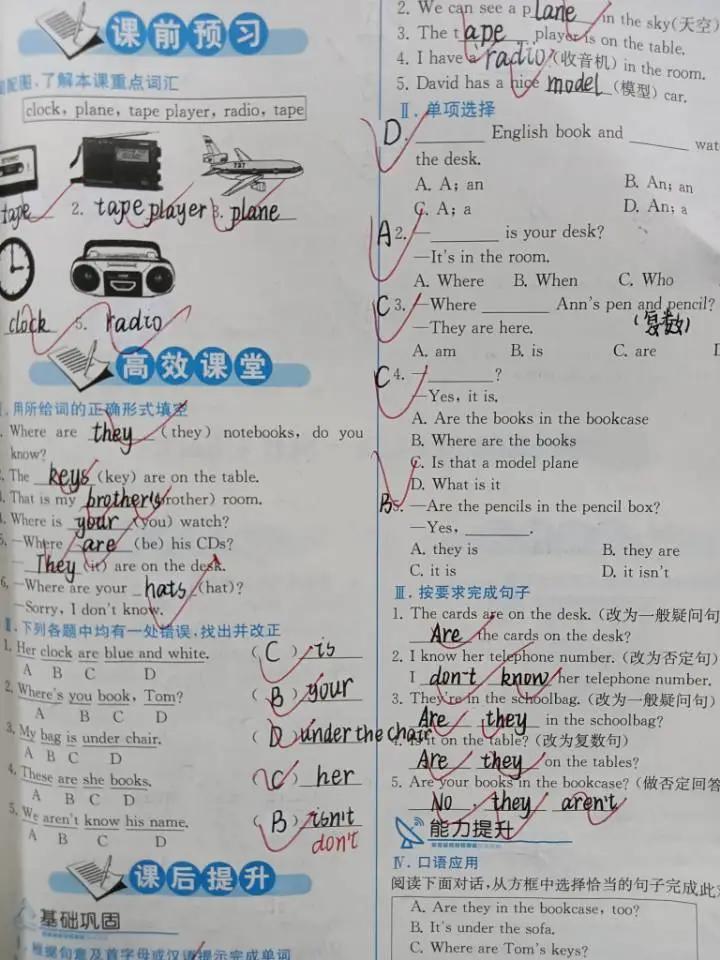 课前预习
配图,了解本课重点词汇
clock, plane, tape player, radio, tape
tape 2. tape player 3. plane
clock 5. radio
高效课堂
Ⅰ. 用所给词的正确形式填空
Where are they (they) notebooks, do you
know?
The keys (key) are on the table.
That is my brother's (brother) room.
Where is your (you) watch?
5. —Where are (be) his CDs?
—They (it) are on the desk.
6. —Where are your hats (hat)?
—Sorry, I don't know.
Ⅱ. 下列各题中均有一处错误,找出并改正
1. Her clock are blue and white. ( C ) is
A B C D
2. Where's you book, Tom? ( B ) your
A B C D
3. My bag is under chair. ( D ) under the chair
A B C D
4. These are she books. ( C ) her
A B C D
5. We aren't know his name. ( B ) isn't
A B C D don't
课后提升
基础巩固
Ⅰ. 根据句意及首字母或汉语提示完成单词
2. We can see a plane in the sky(天空)
3. The tape player is on the table.
4. I have a radio (收音机) in the room.
5. David has a nice model (模型) car.
Ⅱ. 单项选择
D. ______ English book and ______
the desk.
A. A; an B. An; an
C. A; a D. An; a
A 2. —______ is your desk?
—It's in the room.
A. Where B. When C. Who
C 3. —Where ______ Ann's pen and pencil?
—They are here. (复数)
A. am B. is C. are
C 4. —______?
—Yes, it is.
A. Are the books in the bookcase
B. Where are the books
C. Is that a model plane
D. What is it
B 5. —Are the pencils in the pencil box?
—Yes, ______.
A. they is B. they are
C. it is D. it isn't
Ⅲ. 按要求完成句子
1. The cards are on the desk. (改为一般疑问句
Are the cards on the desk?
2. I know her telephone number. (改为否定句)
I don't know her telephone number.
3. They're in the schoolbag. (改为一般疑问句)
Are they in the schoolbag?
4. Is it on the table? (改为复数句)
Are they on the tables?
5. Are your books in the bookcase? (做否定回答
No, they aren't
能力提升
Ⅳ. 口语应用
阅读下面对话,从方框中选择恰当的句子完成此
A. Are they in the bookcase, too?
B. It's under the sofa.
C. Where are Tom's keys?